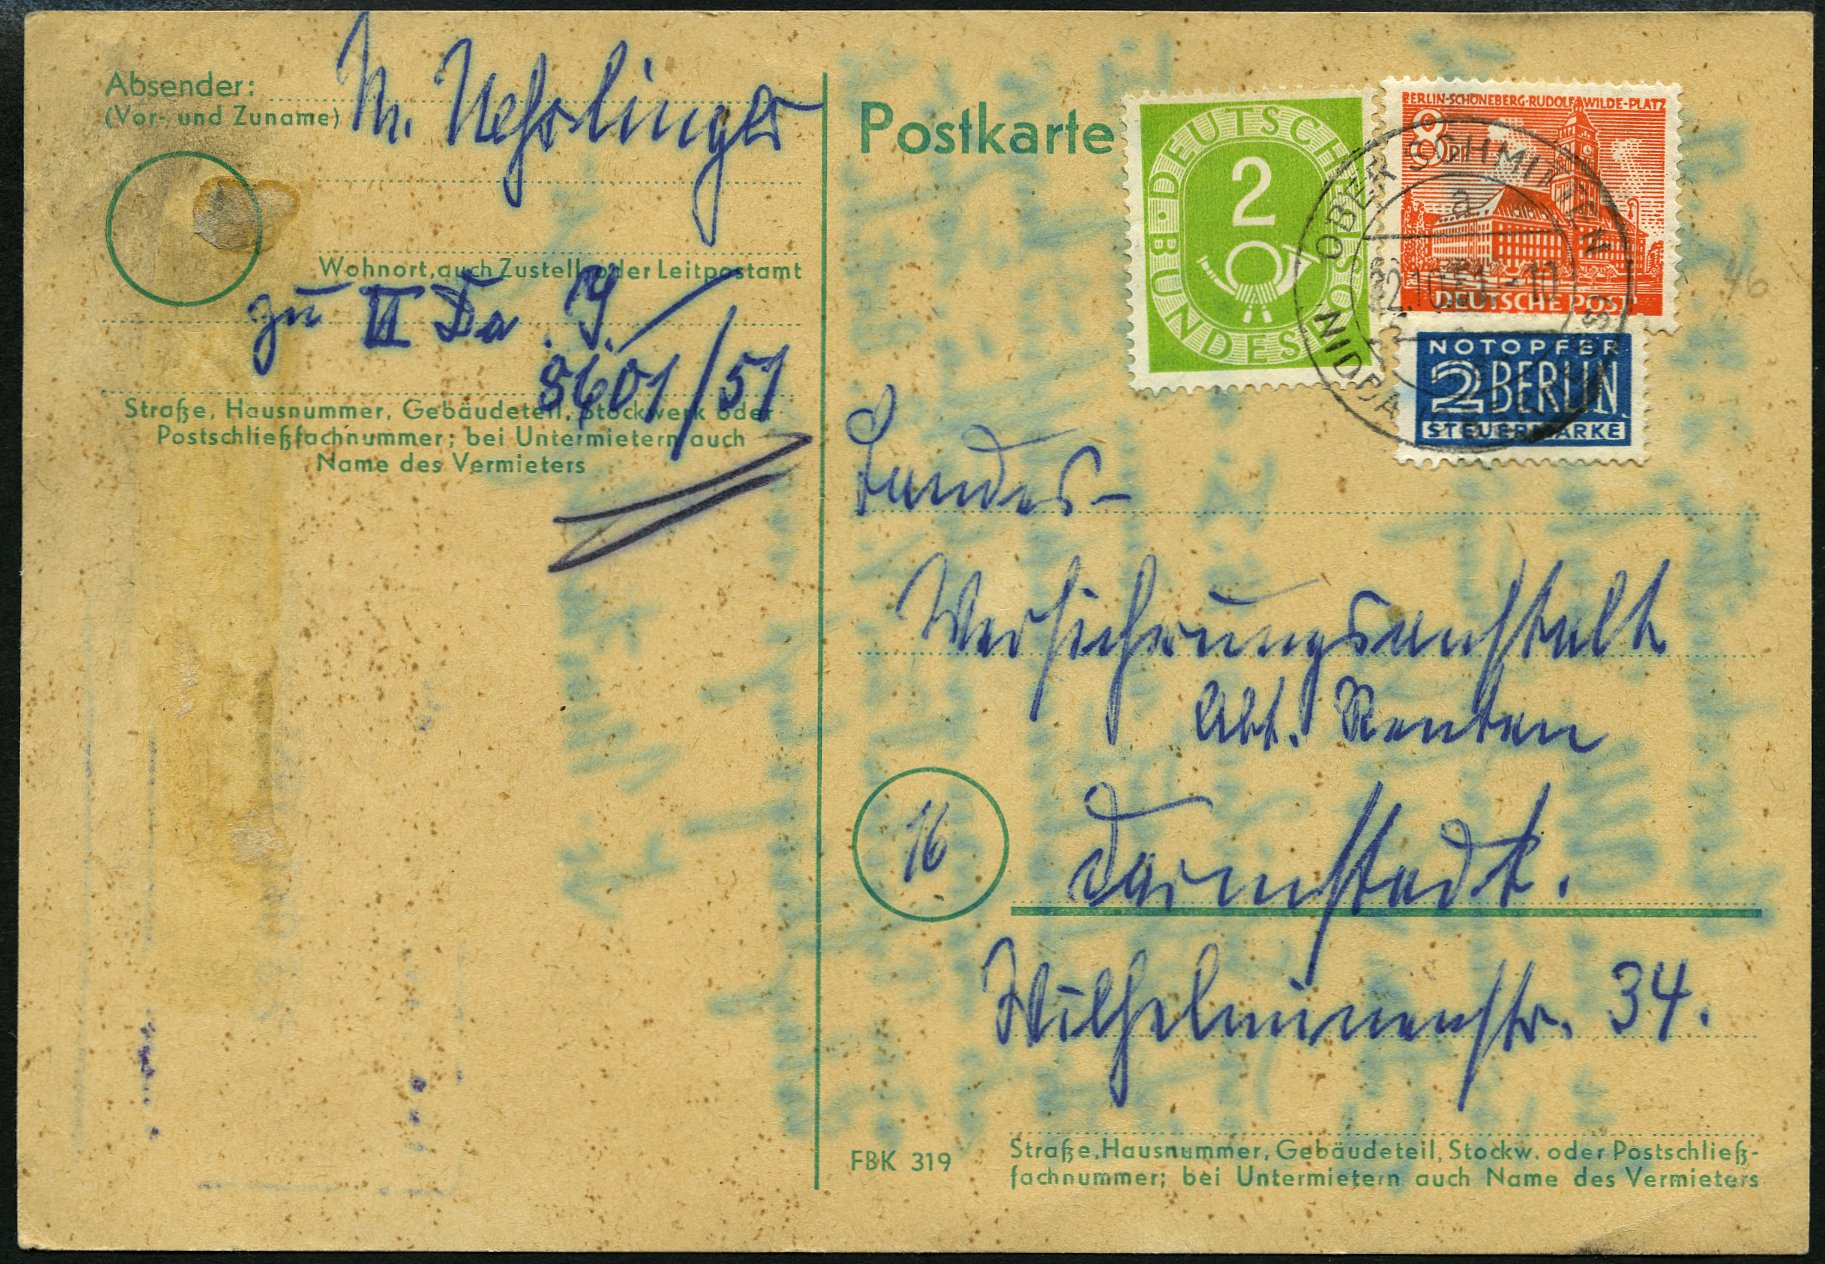 Absender:
(Vor- und Zuname)
M. Nehrlinger
Wohnort, auch Zustell- oder Leitpostamt
zu VI Da. J.
8601/51
Straße, Hausnummer, Gebäudeteil, Stockwerk oder
Postschließfachnummer; bei Untermietern auch
Name des Vermieters
Postkarte
DEUTSCHE BUNDESPOST
2
BERLIN-SCHÖNEBERG·RUDOLF-WILDE-PLATZ
8 PF
DEUTSCHE POST
NOTOPFER
2 BERLIN
STEUERMARKE
OBER SCHMITTEN
a
22.10.51
NIDDA
Landes-
Versicherungsanstalt
Abt. Renten
16
Darmstadt.
Wilhelminenstr. 34.
FBK 319
Straße, Hausnummer, Gebäudeteil, Stockw. oder Postschließ-
fachnummer; bei Untermietern auch Name des Vermieters